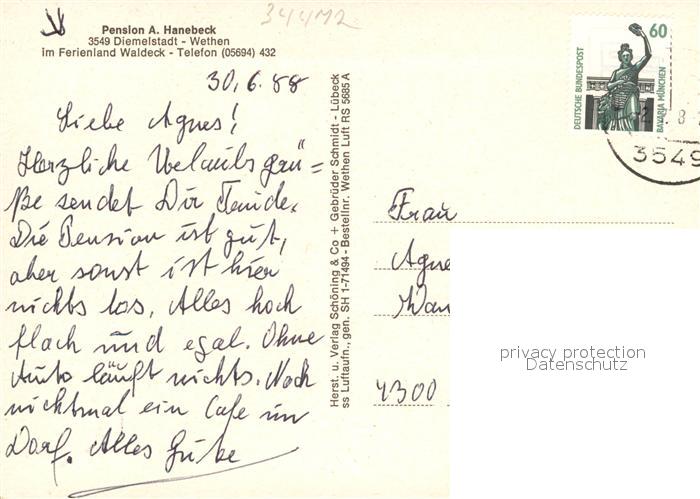 344M2
Pension A. Hanebeck
3549 Diemelstadt - Wethen
im Ferienland Waldeck - Telefon (05694) 432
30.6.88
Liebe Agnes!
Herzliche Urlaubsgrü=
ße sendet Dir
Die Pension ist gut,
aber sonst ist hier
nichts los. Alles hoch
flach und egal. Ohne
Auto läuft nichts. Noch
nichtmal ein Cafe im
Dorf. Alles Gute
Herst. u. Verlag Schöning & Co + Gebrüder Schmidt - Lübeck
ss Luftaufn., gen. SH 1-71494 - Bestellnr. Wethen Luft RS 5685 A
DEUTSCHE BUNDESPOST
60
BAVARIA MÜNCHEN
3549
Frau
Agne
4300
privacy protection
Datenschutz